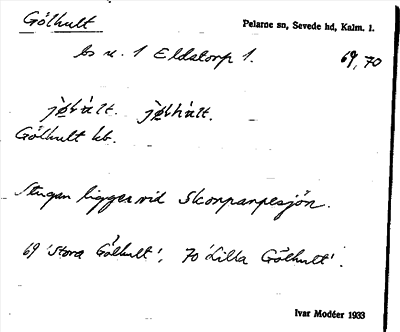 Gölhult
Pelarne sn, Sevede hd, Kalm. l.
bs u. 1 Eldstorp 1. 69, 70
Gölhult kb.
Stugan ligger vid Skorpanpesjön.
69 'Stora Gölhult', 70 'Lilla Gölhult'.
Ivar Modéer 1933